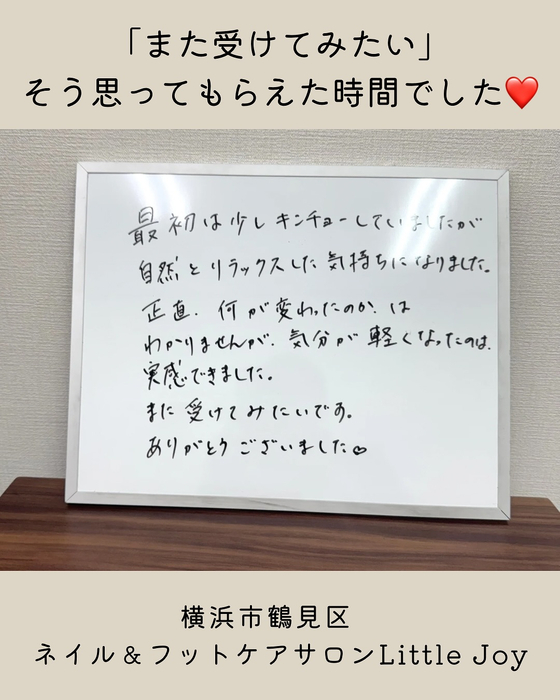 「また受けてみたい」
そう思ってもらえた時間でした❤️
最初は少しキンチョーしていましたが
自然とリラックスした気持ちになりました。
正直、何が変わったのか、は
わかりませんが、気分が軽くなったのは、
実感できました。
また受けてみたいです。
ありがとうございました♡
横浜市鶴見区
ネイル&フットケアサロンLittle Joy